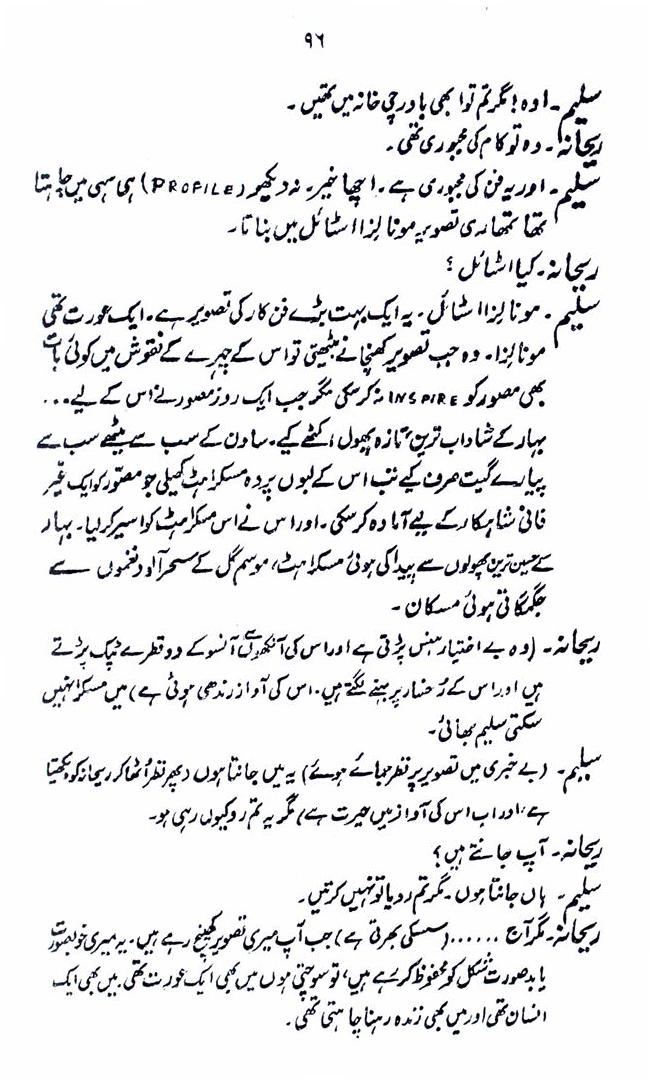 ۹۶
سلیم۔ اوہ! مگر تم تو ابھی باورچی خانہ میں تھیں۔
ریحانہ۔ وہ تو کام کی مجبوری تھی۔
سلیم۔ اور یہ فن کی مجبوری ہے۔ اچھا خیر۔ نہ دیکھو (PROFILE) ہی سہی میں چاہتا
تھا تمھاری تصویر مونا لزا اسٹائل میں بناتا۔
ریحانہ۔ کیا اسٹائل؟
سلیم۔ مونا لزا اسٹائل۔ یہ ایک بہت بڑے فن کار کی تصویر ہے۔ ایک عورت تھی
مونا لزا۔ وہ جب تصویر کھنچانے بیٹھتی تو اس کے چہرے کے نقوش میں کوئی بات
بھی مصور کو INSPIRE نہ کر سکی مگر جب ایک روز مصور نے اس کے لیے...
بہار کے شاداب ترین تازہ پھول اکٹھے کیے۔ ساون کے سب سے میٹھے سب سے
پیارے گیت صرف کیے تب اس کے لبوں پر وہ مسکراہٹ کھیلی جو مصّور کو ایک غیر
فانی شاہکار کے لیے آمادہ کر سکی۔ اور اس نے اس مسکراہٹ کو اسیر کر لیا۔ بہار
کے حسین ترین پھولوں سے پیدا کی ہوئی مسکراہٹ، موسم گل کے سحر آلود نغموں سے
جگمگاتی ہوئی مسکان۔
ریحانہ۔ (وہ بے اختیار ہنس پڑتی ہے اور اس کی آنکھوں سے آنسو کے دو قطرے ٹپک پڑتے
ہیں اور اس کے رُخسار پر بہنے لگتے ہیں۔ اس کی آواز رندھی ہوئی ہے) میں مسکرا نہیں
سکتی سلیم بھائی۔
سلیم۔ (بے خبری میں تصویر پر نظر جمائے ہوئے) یہ میں جانتا ہوں (پھر نظر اُٹھا کر ریحانہ کو دیکھتا
ہے، اور اب اس کی آواز میں حیرت ہے) مگر یہ تم رو کیوں رہی ہو۔
ریحانہ۔ آپ جانتے ہیں؟
سلیم۔ ہاں جانتا ہوں۔ مگر تم رویا تو نہیں کرتیں۔
ریحانہ۔ مگر آج ...... (سسکی بھرتی ہے) جب آپ میری تصویر کھینچ رہے ہیں۔ یہ میری خوبصورت
یا بدصورت شکل کو محفوظ کر رہے ہیں، تو سوچتی ہوں میں بھی ایک عورت تھی۔ میں بھی ایک
انسان تھی اور میں بھی زندہ رہنا چاہتی تھی۔